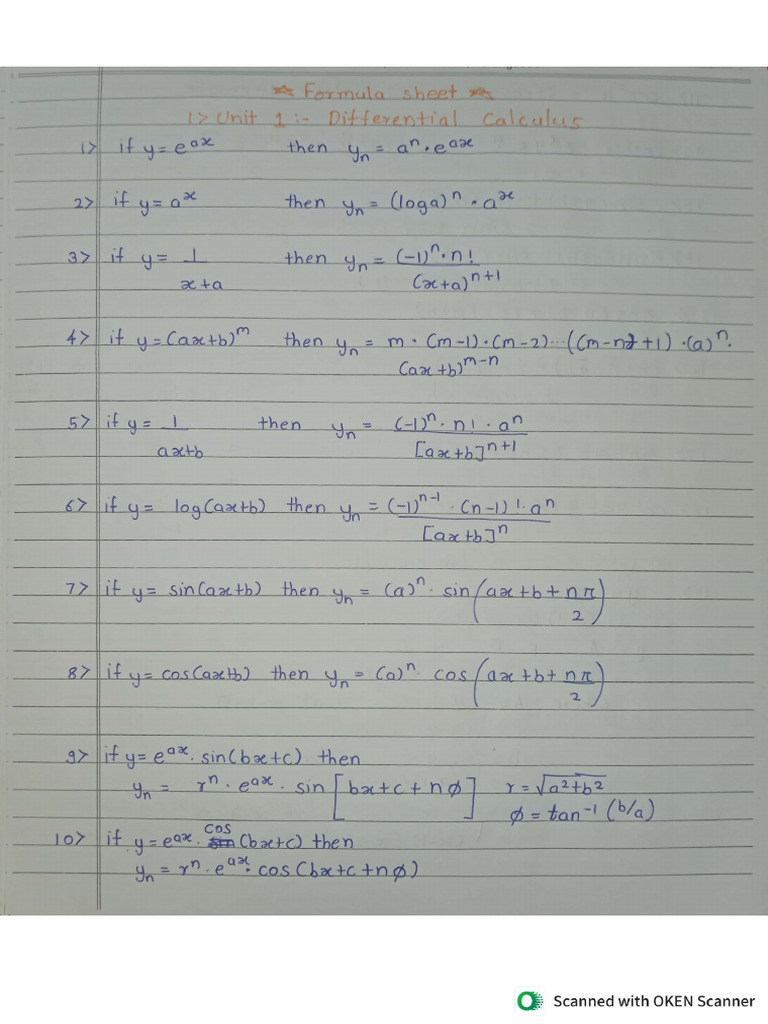 ☆ Formula sheet ☆
1> Unit 1 :- Differential Calculus
1> if y = e^ax then y_n = a^n · e^ax
2> if y = a^x then y_n = (log a)^n · a^x
3> if y = 1/(x+a) then y_n = (-1)^n · n! / (x+a)^n+1
4> if y = (ax+b)^m then y_n = m · (m-1) · (m-2) ... ((m-n+1) · (a)^n ·
(ax+b)^m-n
5> if y = 1/(ax+b) then y_n = (-1)^n · n! · a^n / [ax+b]^n+1
6> if y = log(ax+b) then y_n = (-1)^n-1 · (n-1)! · a^n / [ax+b]^n
7> if y = sin(ax+b) then y_n = (a)^n · sin(ax+b+nπ/2)
8> if y = cos(ax+b) then y_n = (a)^n · cos(ax+b+nπ/2)
9> if y = e^ax · sin(bx+c) then
y_n = r^n · e^ax · sin[bx+c+nø] r = √a²+b²
ø = tan^-1 (b/a)
10> if y = e^ax · cos(bx+c) then
y_n = r^n · e^ax · cos(bx+c+nø)
Scanned with OKEN Scanner